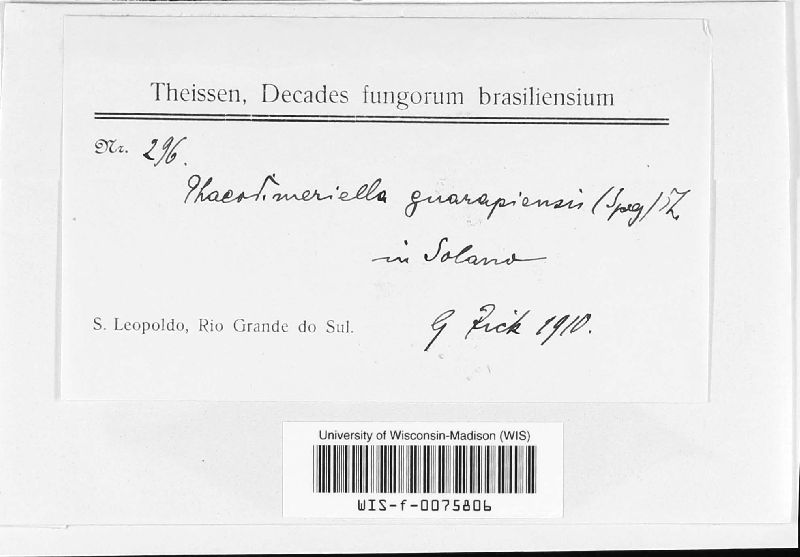 Theissen, Decades fungorum brasiliensium
Nr. 296.
Phaeodimeriella guarapiensis (Speg) Th.
in Solano
S. Leopoldo, Rio Grande do Sul.
G Rick 1910.
University of Wisconsin-Madison (WIS)
WIS-f-0075806